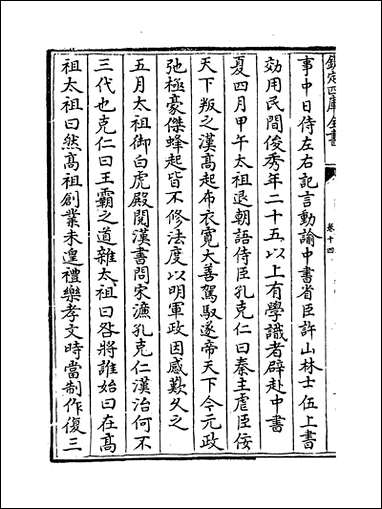 欽定四庫全書
卷十四
事中日侍左右記言動諭中書省臣許山林士伍上書
効用民間俊秀年二十五以上有學識者辟赴中書
夏四月甲午太祖退朝語侍臣孔克仁曰秦主虐臣佞
天下叛之漢高起布衣寛大善駕馭遂帝天下今元政
弛極豪傑蜂起皆不修法度以明軍政因感歎久之
五月太祖御白虎殿閲漢書問宋濂孔克仁漢治何不
三代也克仁曰王霸之道雜太祖曰咎將誰始曰在髙
祖太祖曰然高祖創業未遑禮樂孝文時當制作復三